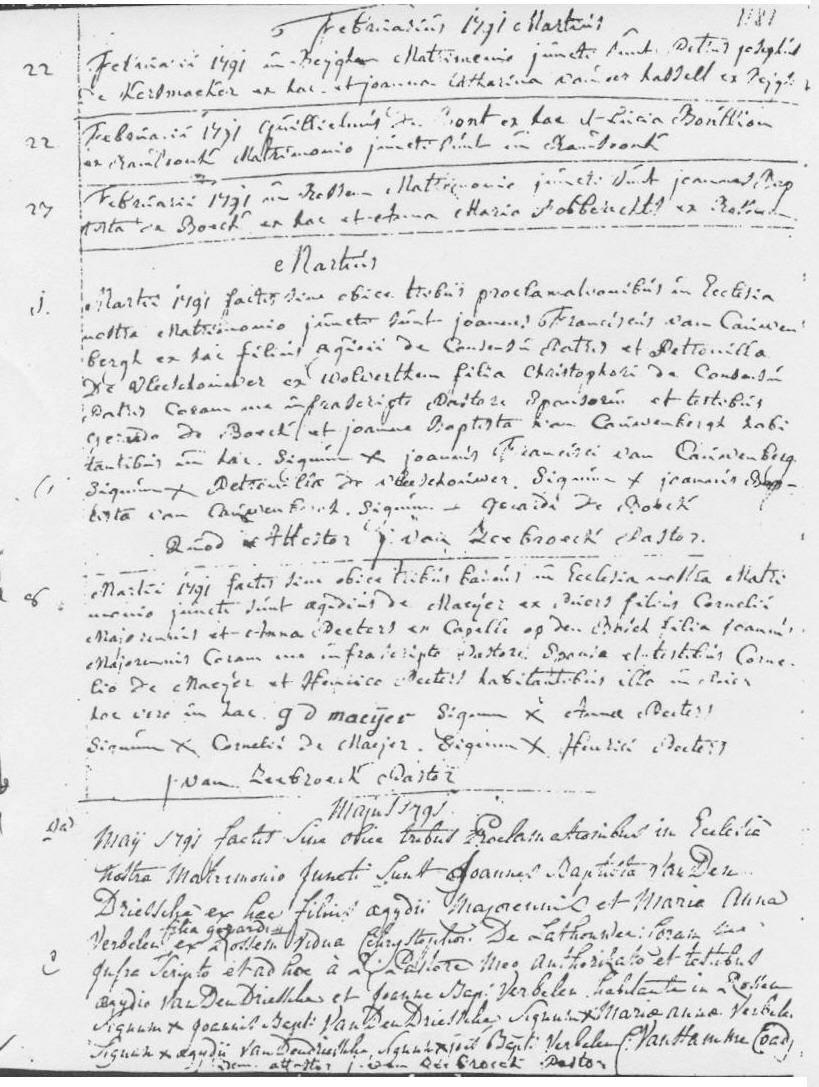 Februarius 1791 Martius
22 Februarii 1791 in Beyghem Matrimonio juncti sunt Petrus josephus
de Kersmaeker ex hac et joanna Catharina vander hasselt ex Beygh
22 Februarii 1791 Guillielmus De Bont ex hac et Lucia Bouillion
ex Ramsdonck Matrimonio juncti sunt in Ramsdonck
27 Februarii 1791 in Rossem Matrimonio juncti sunt joannes Bap
tista De Boeck ex hac et Anna Maria Robberechts ex Rossem
Martius
1. Martii 1791 factis sine obice tribus proclamationibus in Ecclesia
nostra Matrimonio juncti sunt joannes Franciscus van Cauwen
bergh ex hac filius de Consensu Patris et Petronilla
De Vleeschouwer ex Wolverthem filia Christophori de Consensu
Patris Coram me infrascripto Pastore Sponsorum et testibus
Gerardo de Boeck et joanne Baptista van Cauwenbergh habi
tantibus in hac. Signum X joannis Francisci van Cauwenberg
Signum X Petronillae de vleeschouwer. Signum X joannis Bap-
tista van Cauwenbergh. Signum + Gerardi de Boeck
Quod Attestor j. van Zeebroeck Pastor.
Martii 1791 factis sine obice tribus bannis in Ecclesia nostra Matri
monio juncti sunt ægidius de Maeyer ex filius Cornelii
Majorennis et Anna Peeters ex Capelle op den Bosch filia joannis
Majorennis Coram me infrascripto Pastore Sponsae et testibus Corne
lio de Maeyer et Henrico Peeters habitantibus illo in
hac vero in hac. g d maeyer Signum X Annae Peeters
Signum X Cornelii de Maeyer. Signum X Henrici Peeters
j van Zeebroeck Pastor
Majus 1791
Maij 1791 factis sine obice tribus Proclamationibus in Ecclesia
nostra Matrimonio Juncti Sunt Joannes Baptista Van Den
Driessche ex hac filius ægydii Majorennis et Maria Anna
filia gerardi
Verbelen ex Rossem Vidua Chrystophori De Lathouwer: Coram me
Infra Scripto et ad hoc à R: D: Pastore Meo Authorizato et testibus
ægydio Van Den Driessche et Joanne Bap: Verbelen habitante in Rossem
Signum x Joannis Bapti Van Den Driessche Signum x Mariæ annæ Verbelen
Signum x ægydii Van Dendriessche, Signum x Bapti Verbelen C: Van Hamme Coadj
attestor j. van Zeebroeck Pastor